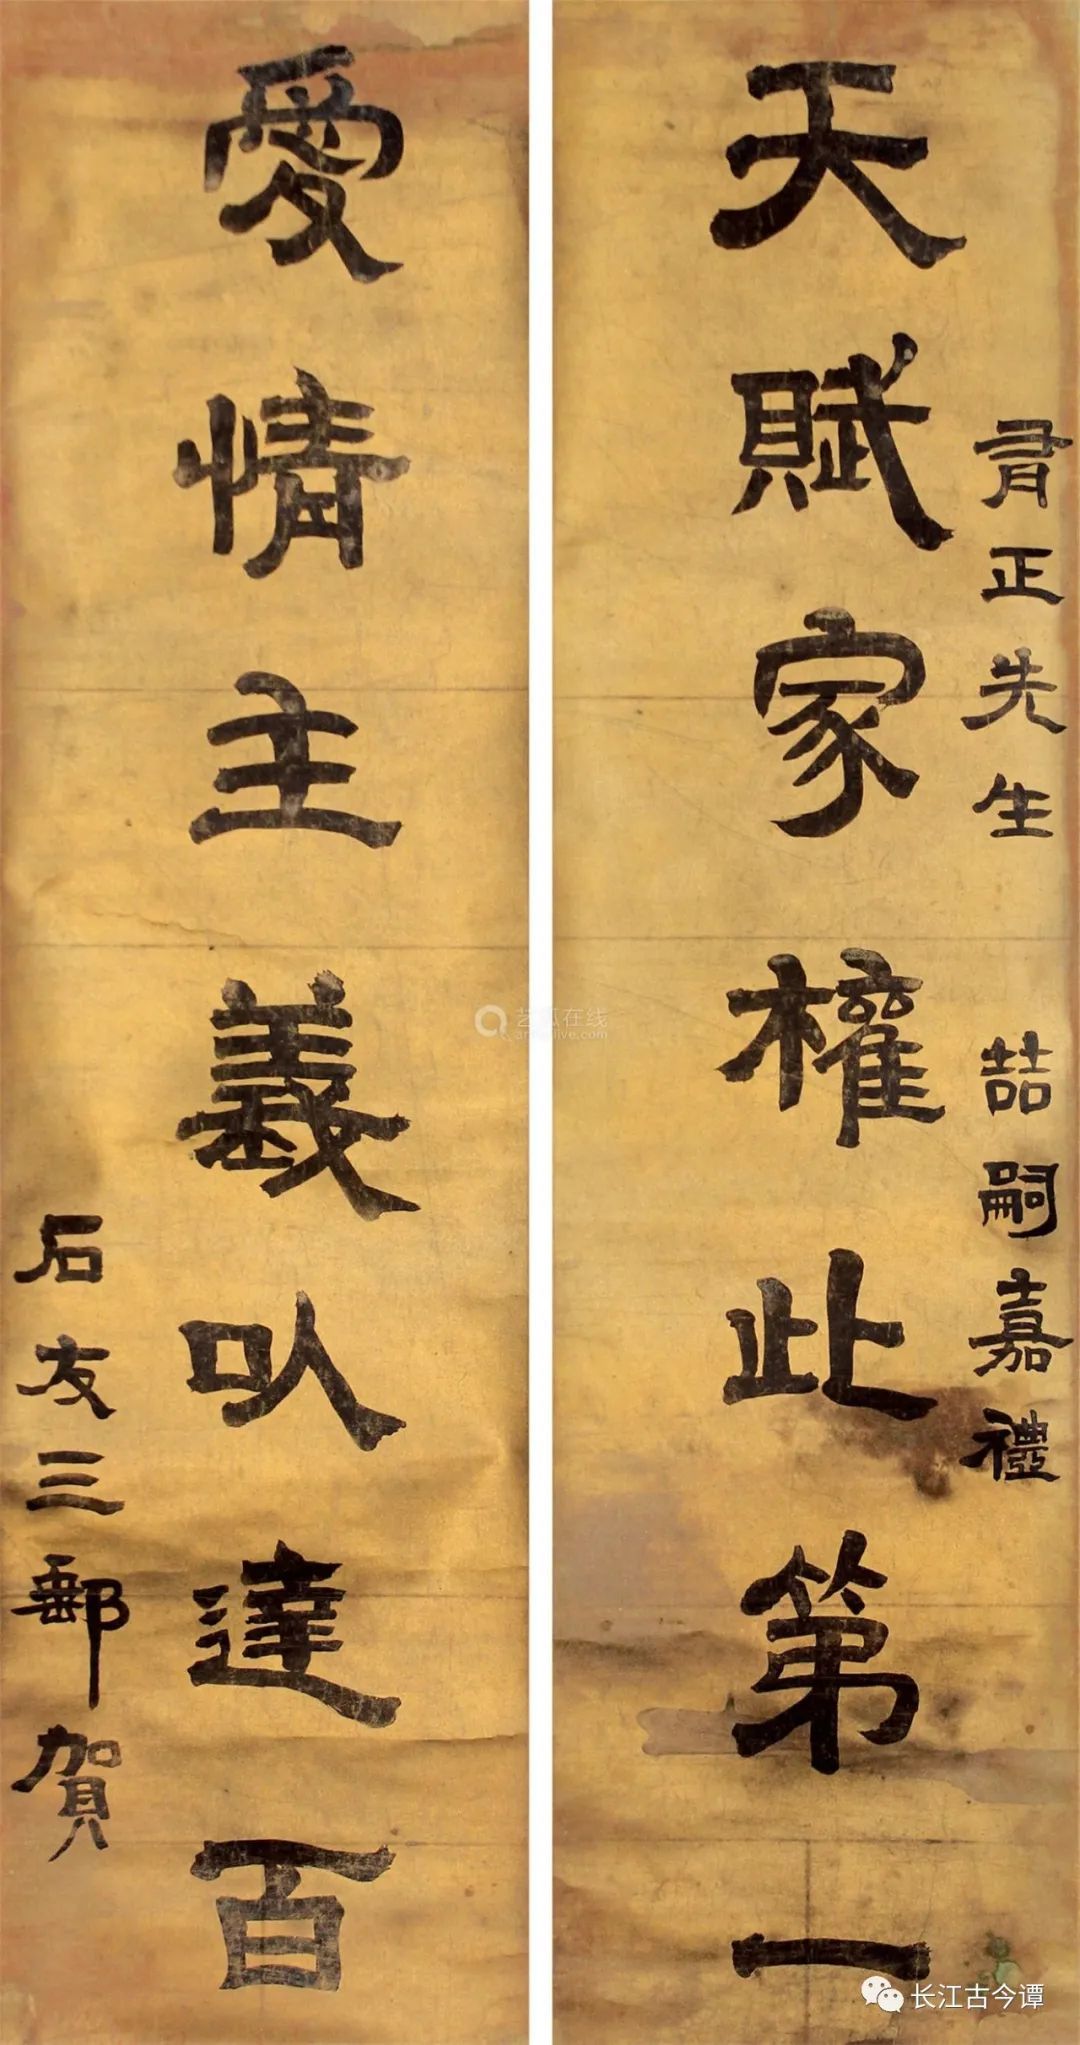 正先生 喆嗣嘉禮
天賦家權此第一
愛情主義以達百
石友三郵賀
艺狐在线
artfoxlive.com
长江古今谭